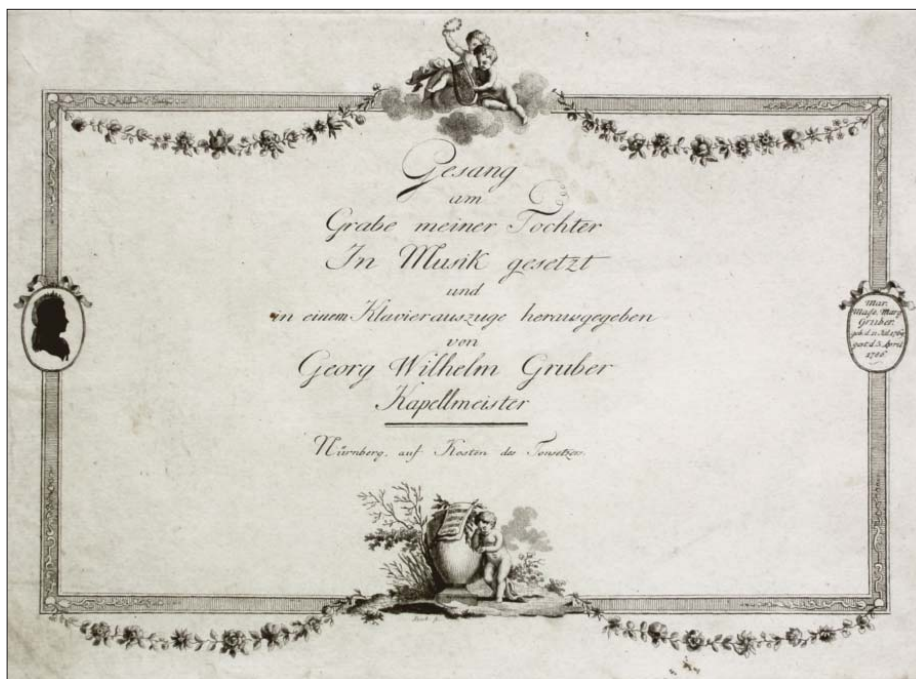 Gesang
am
Grabe meiner Tochter
In Musik gesetzt
und
in einem Klavierauszuge herausgegeben
von
Georg Wilhelm Gruber
Kapellmeister
Nürnberg, auf Kosten des Tonsetzers.
Mar.
Marg.
Gruber.
geb. d.
gest. d. 3. April